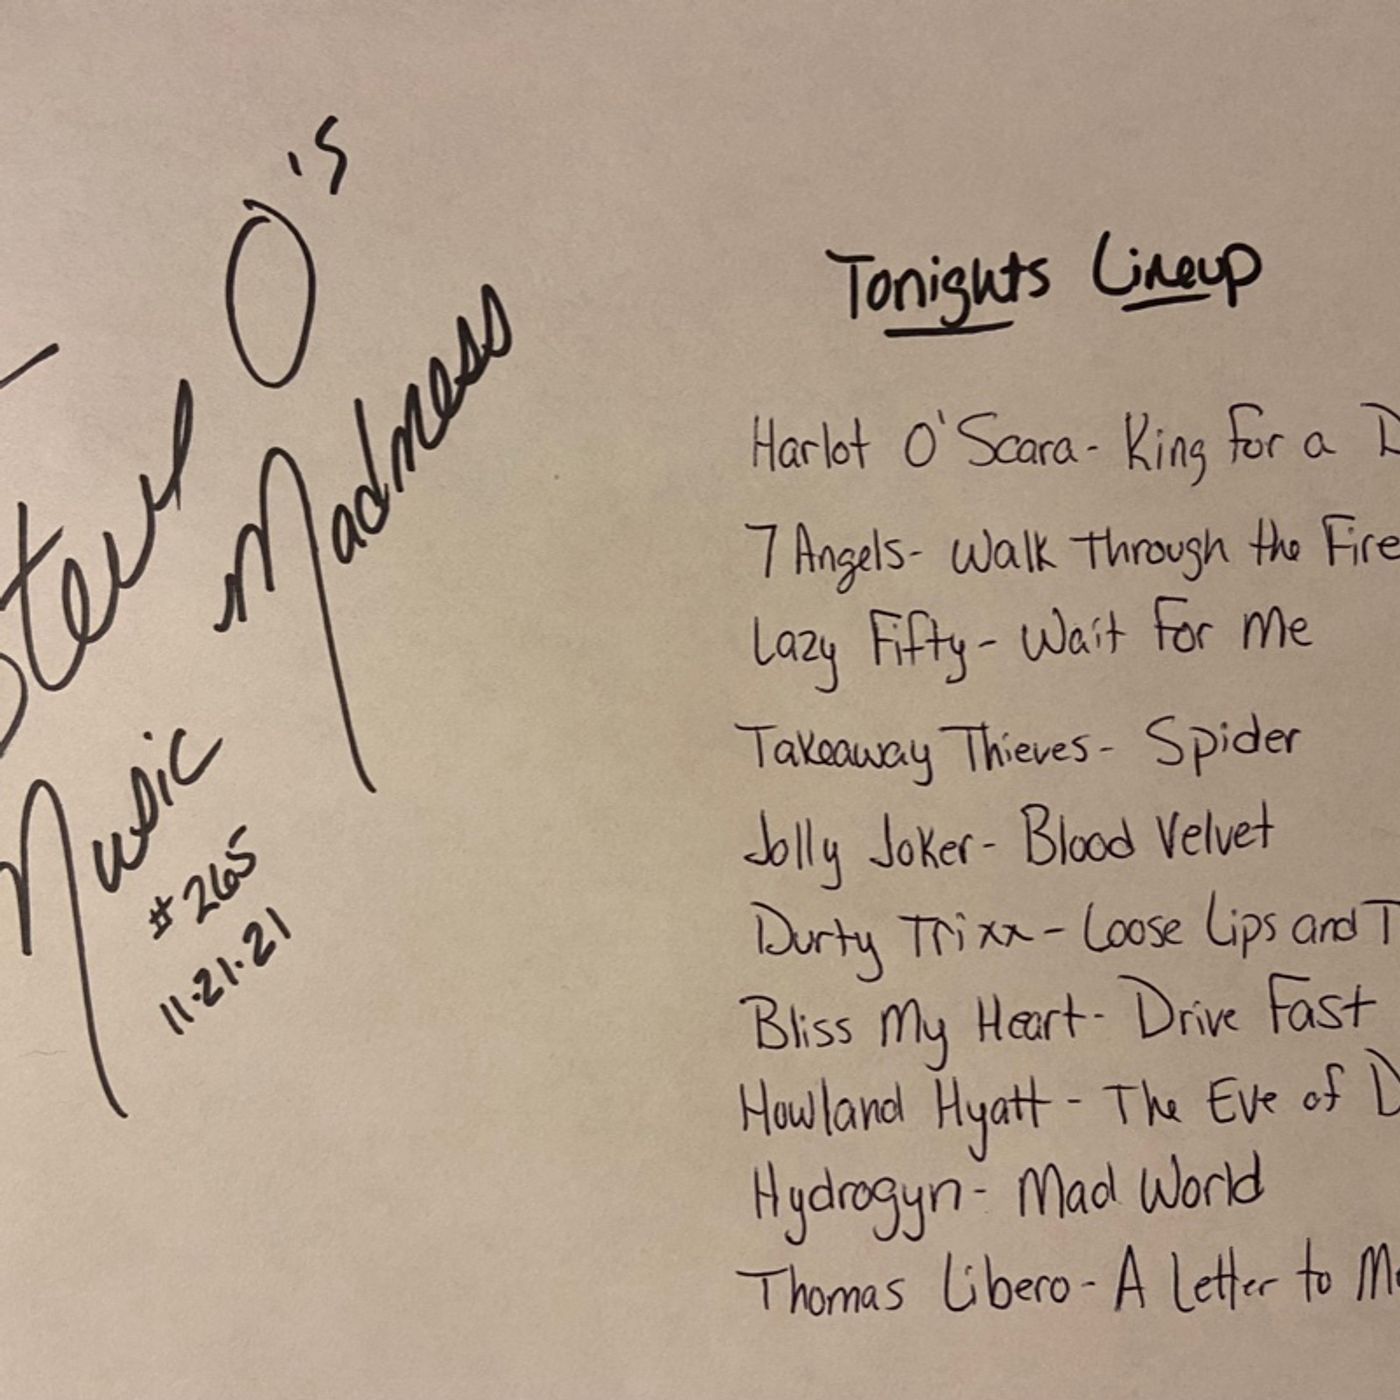 Stevie O's
Music Madness
#265
11.21.21
Tonights Lineup
Harlot O'Scara- King For a D
7 Angels- Walk Through the Fire
Lazy Fifty- Wait For Me
Takeaway Thieves- Spider
Jolly Joker- Blood Velvet
Durty Trixx- Loose Lips and T
Bliss My Heart- Drive Fast
Howland Hyatt- The Eve of D
Hydrogyn- Mad World
Thomas Libero- A Letter to Me